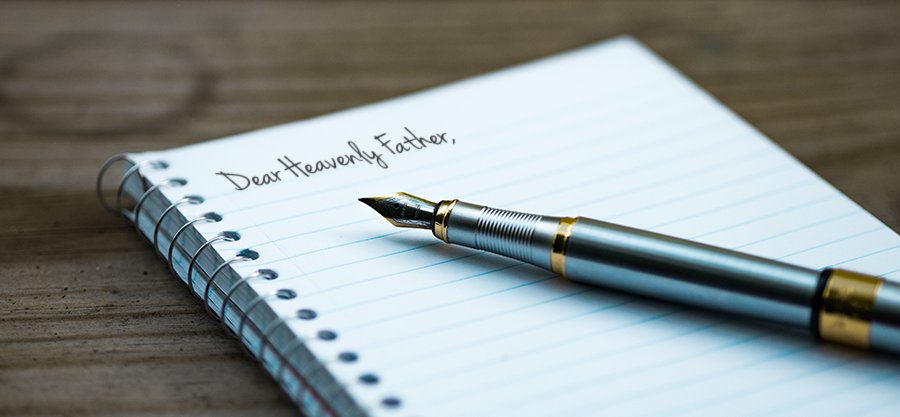 Dear Heavenly Father,